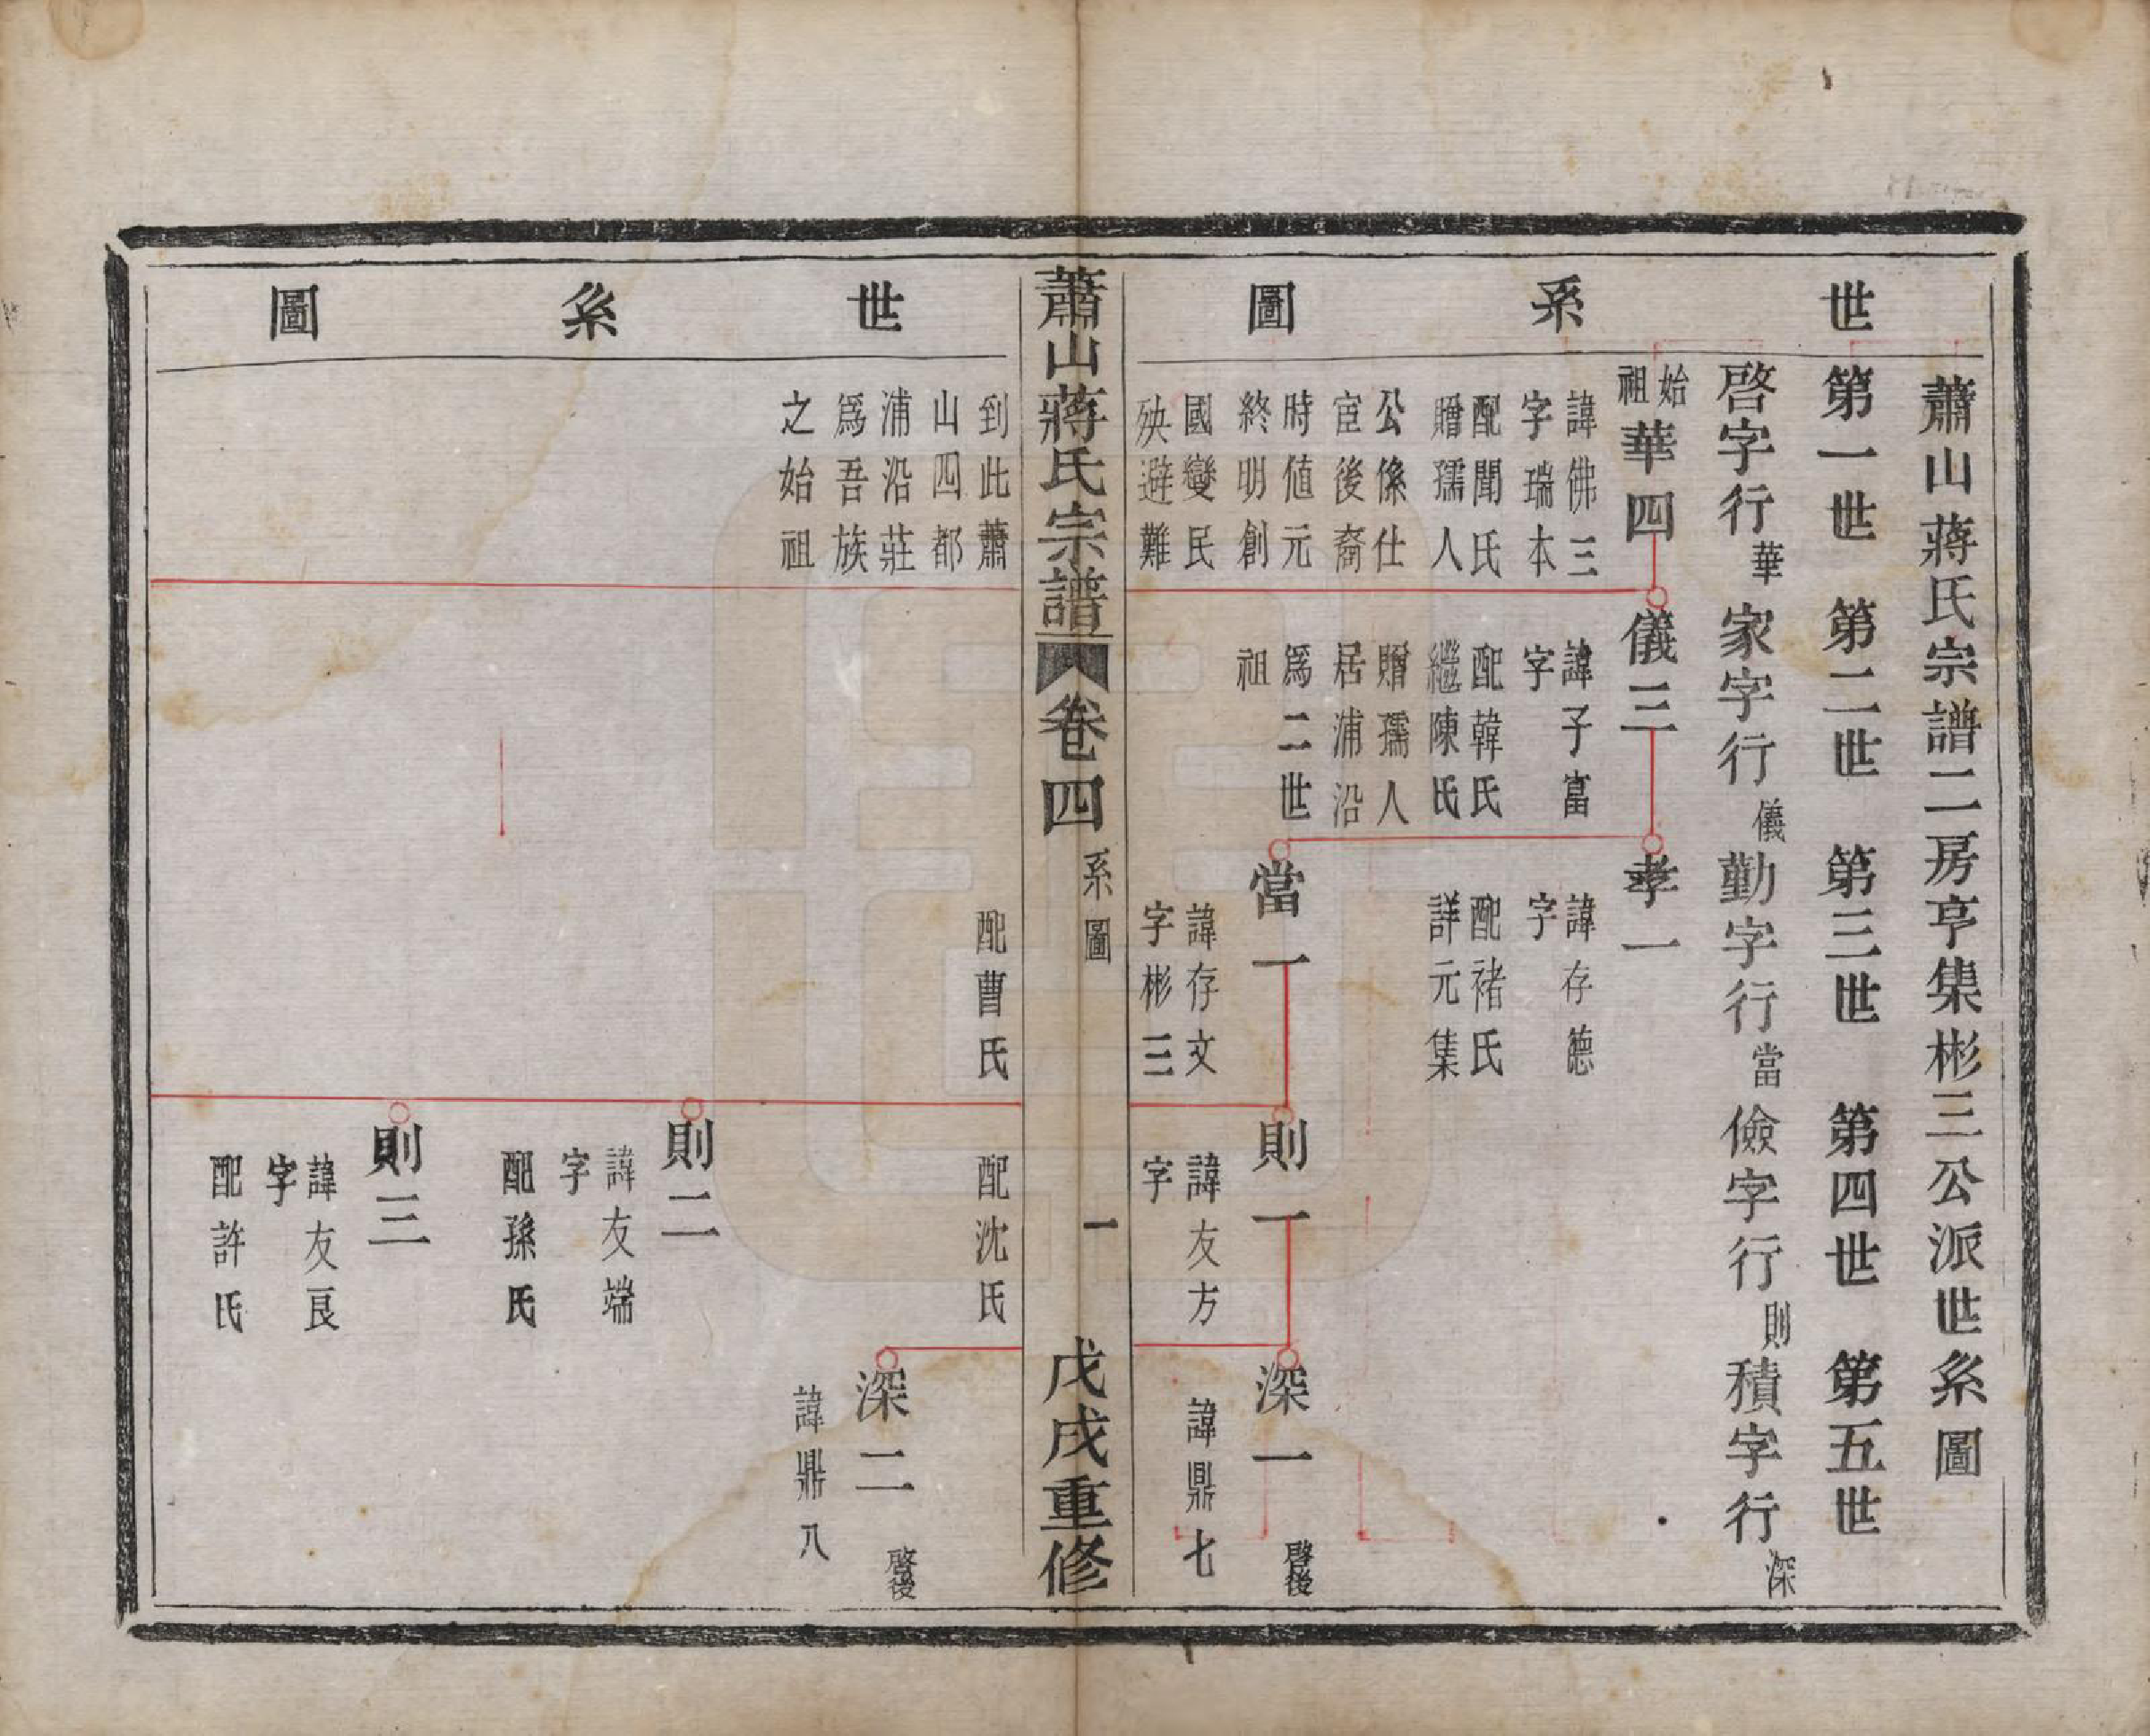 世系圖
蕭山蔣氏宗譜二房亨集彬三公派世系圖
第一世 第二世 第三世 第四世 第五世
啓字行華 家字行儀 勤字行當 儉字行則 積字行深
始祖華四
諱佛三
字瑞本
配聞氏
贈孺人
公係仕
宦後裔
時値元
終明創
國變民
殃避難
儀三
諱子富
字
配韓氏
繼陳氏
贈孺人
居浦沿
爲二世
祖
孝一
諱存德
字
配褚氏
詳元集
當一
諱存文
字彬三
則一
諱友方
字
深一 啓後
諱鼎七
蕭山蔣氏宗譜 卷四 系圖 一 戊戌重修
世系圖
到此蕭
山四都
浦沿莊
爲吾族
之始祖
配曹氏
配沈氏
深二 啓後
諱鼎八
則二
諱友端
字
配孫氏
則三
諱友良
字
配許氏